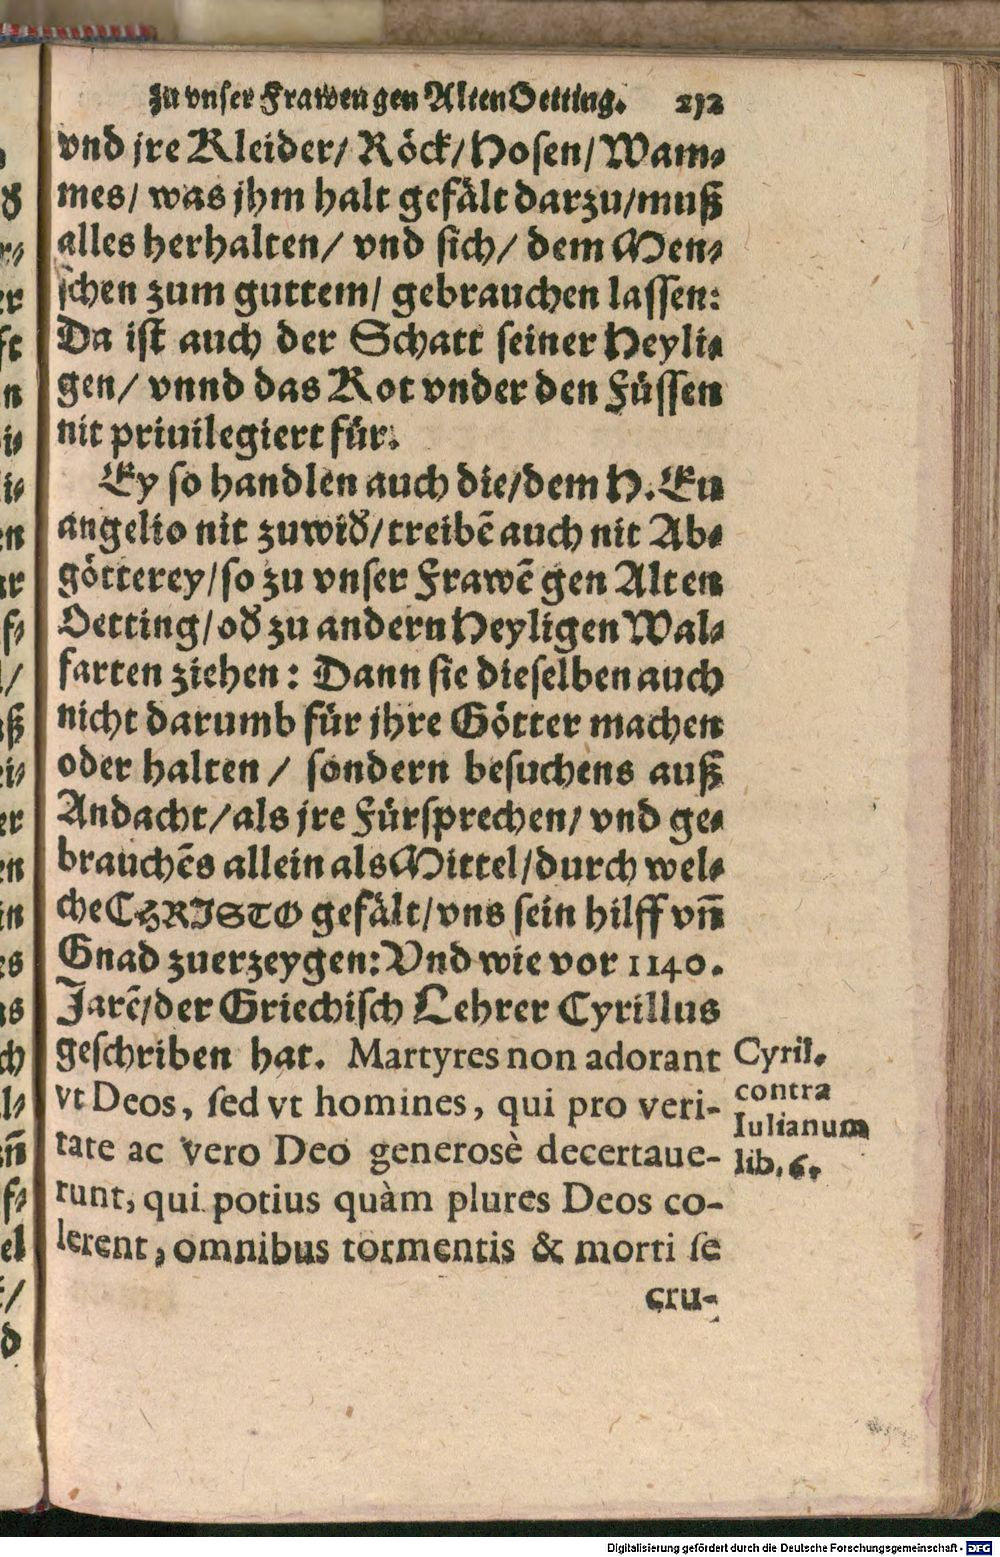 zu vnser Frawen gen Alten Oetting. 232
vnd jre Kleider/ Röck/ Hosen/ Wam-
mes/ was jhm halt gefält darzu/ muß
alles herhalten/ vnd sich/ dem Men-
schen zum guttem/ gebrauchen lassen:
Da ist auch der Schatt seiner Heyli-
gen/ vnnd das Kot vnder den Füssen
nit priuilegiert für.
Ey so handlen auch die/ dem H. Eu
angelio nit zuwid̕/ treibē auch nit Ab-
götterey/ so zu vnser Frawē gen Alten
Oetting/ od̕ zu andern Heyligen Wal-
farten ziehen: Dann sie dieselben auch
nicht darumb für jhre Götter machen
oder halten / sondern besuchens auß
Andacht/ als jre Fürsprechen/ vnd ge-
brauchēs allein als Mittel/ durch wel-
che CHRISTO gefält/ vns sein hilff vn̄
Gnad zuerzeygen: Vnd wie vor 1140.
Jarē/ der Griechisch Lehrer Cyrillus
geschriben hat. Martyres non adorant
vt Deos, sed vt homines, qui pro veri-
tate ac vero Deo generosè decertaue-
runt, qui potius quàm plures Deos co-
lerent, omnibus tormentis & morti se
cru-
Cyril.
contra
Iulianum
lib. 6.
Digitalisierung gefördert durch die Deutsche Forschungsgemeinschaft - DFG